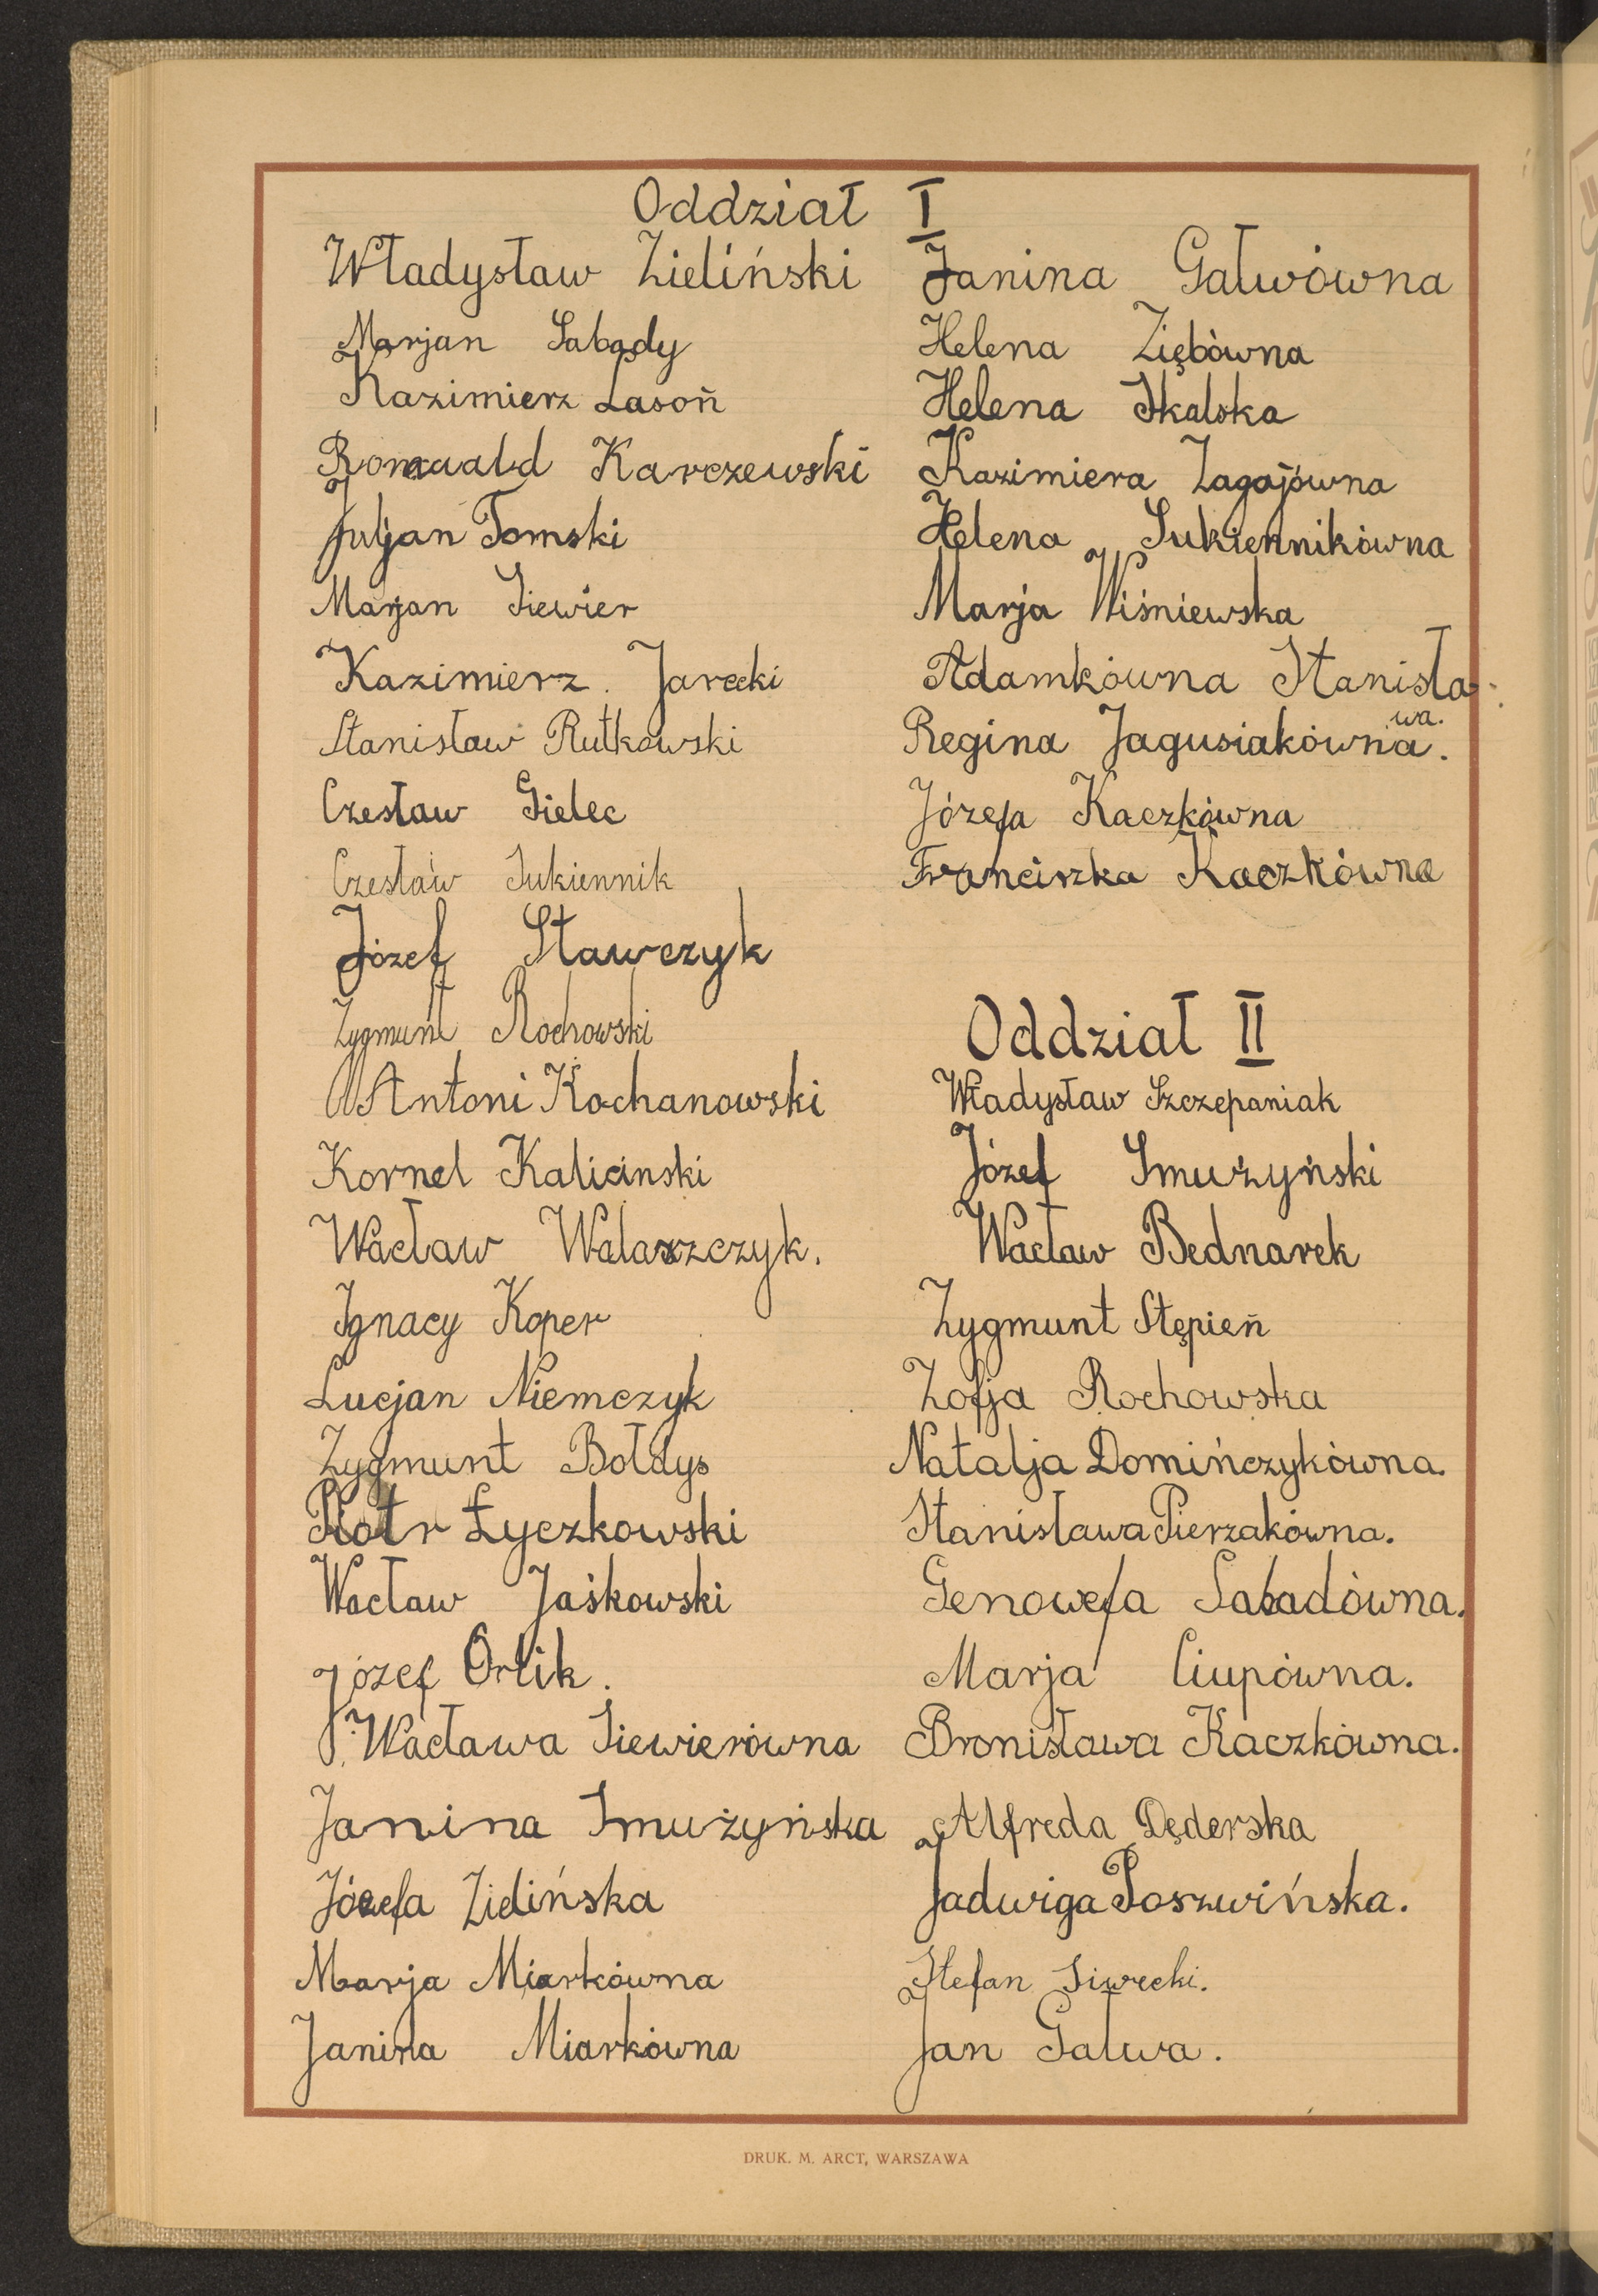 Oddział I
Władysław Zieliński
Marjan Sabady
Kazimierz Lasoń
Romuald Karczewski
Juljan Tomski
Marjan Siewier
Kazimierz. Jarecki
Stanisław Rutkowski
Czesław Gielec
Czesław Sukiennik
Józef Stawczyk
Zygmunt Rochowski
Antoni Kochanowski
Kornel Kalicinski
Wacław Walaszczyk.
Ignacy Koper
Lucjan Niemczyk
Zygmunt Bołdys
Piotr Łyczkowski
Wacław Jaśkowski
Józef Orlik.
Wacława Siewierówna
Janina Smużyńska
Józefa Zielińska
Marja Miarkówna
Janina Miarkówna
Janina Gałwówna
Helena Ziębówna
Helena Skalska
Kazimiera Zagajówna
Helena Sukiennikówna
Marja Wiśniewska
Adamkówna Stanisła-
wa.
Regina Jagusiakówna.
Józefa Kaczkówna
Franciszka Kaczkówna
Oddział II
Władysław Szczepaniak
Józef Smużyński
Wacław Bednarek
Zygmunt Stępień
Zofja Rochowska
Natalja Domińczykówna.
Stanisława Pierzakówna.
Genowefa Sabadówna.
Marja Ciupówna.
Bronisława Kaczkówna.
Alfreda Dęderska
Jadwiga Poszwińska.
Stefan Siwecki.
Jan Gałwa.
DRUK. M. ARCT, WARSZAWA